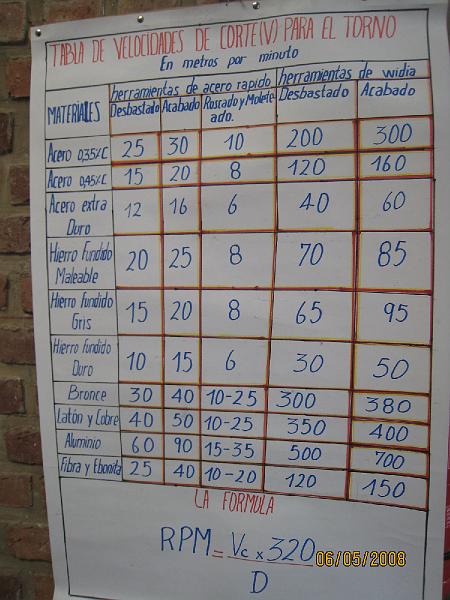 TABLA DE VELOCIDADES DE CORTE(V) PARA EL TORNO
En metros por minuto
MATERIALES herramientas de acero rapido herramientas de widia
Desbastado Acabado Roscado y Moleteado. Desbastado Acabado
Acero 0,35%C 25 30 10 200 300
Acero 0,45%C 15 20 8 120 160
Acero extra Duro 12 16 6 40 60
Hierro Fundido Maleable 20 25 8 70 85
Hierro fundido Gris 15 20 8 65 95
Hierro fundido Duro 10 15 6 30 50
Bronce 30 40 10-25 300 380
Latón y Cobre 40 50 10-25 350 400
Aluminio 60 90 15-35 500 700
Fibra y Ebonita 25 40 10-20 120 150
LA FORMULA
RPM = Vc x 320
D
06/05/2008